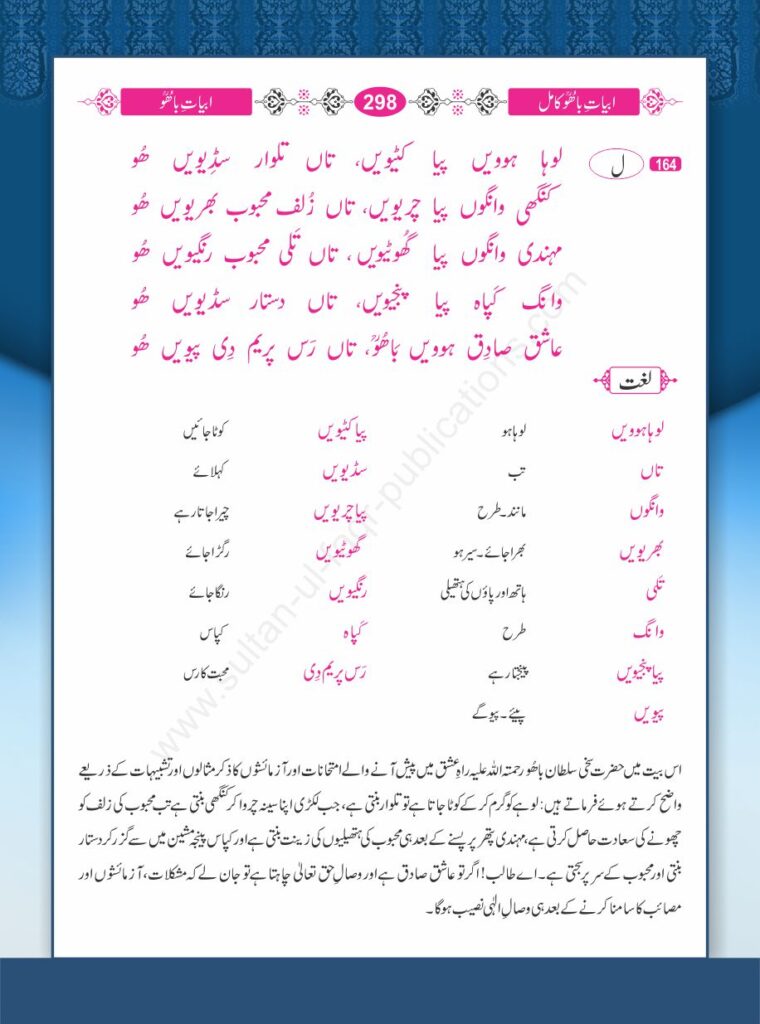 ابیاتِ باھُوؒ کامل 298 ابیاتِ باھُوؒ
164 ل
لوہا ہوویں پیا کٹیویں، تاں تلوار سڈیویں ھُو
کنگھی وانگوں پیا چریویں، تاں زُلف محبوب بھریویں ھُو
مہندی وانگوں پیا گھُوٹیویں، تاں تَلی محبوب رنگیویں ھُو
وانگ کَپاہ پیا پنجیویں، تاں دستار سڈیویں ھُو
عاشق صادِق ہوویں بَاھُوؒ، تاں رَس پریم دِی پیویں ھُو
لغت
لوہا ہوویں لوہا ہو پیا کٹیویں کوٹا جائیں
تاں تب سڈیویں کہلائے
وانگوں مانند۔ طرح پیا چریویں چیرا جاتا رہے
بھریویں بھرا جائے۔ سیر ہو گھوٹیویں رگڑا جائے
تَلی ہاتھ اور پاؤں کی ہتھیلی رنگیویں رنگا جائے
وانگ طرح کَپاہ کپاس
پیا پنجیویں پینجتا رہے رَس پریم دِی محبت کا رس
پیویں پیئے۔ پیو گے
اس بیت میں حضرت سخی سلطان باھُو رحمتہ اللہ علیہ راہِ عشق میں پیش آنے والے امتحانات اور آزمائشوں کا ذکر مثالوں اور تشبیہات کے ذریعے
واضح کرتے ہوئے فرماتے ہیں: لوہے کو گرم کر کے کوٹا جاتا ہے تو تلوار بنتی ہے، جب لکڑی اپنا سینہ چروا کر کنگھی بنتی ہے تب محبوب کی زلف کو
چھونے کی سعادت حاصل کرتی ہے، مہندی پتھر پر پسنے کے بعد ہی محبوب کی ہتھیلیوں کی زینت بنتی ہے اور کپاس پنجہ مشین میں سے گزر کر دستار
بنتی اور محبوب کے سر پر سجتی ہے۔ اے طالب! اگر تو عاشق صادق ہے اور وصالِ حق تعالیٰ چاہتا ہے تو جان لے کہ مشکلات، آزمائشوں اور
مصائب کا سامنا کرنے کے بعد ہی وصالِ الٰہی نصیب ہوگا۔
www.sultan-ul-faqr-publications.com